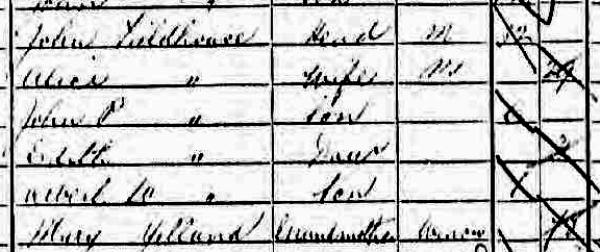 son
John Fieldhouse Head M 32
Alice " Wife M 29
John P " Son 6
Edith " Daur 3
Albert W " Son 1
Mary Yelland Grandmother Widow